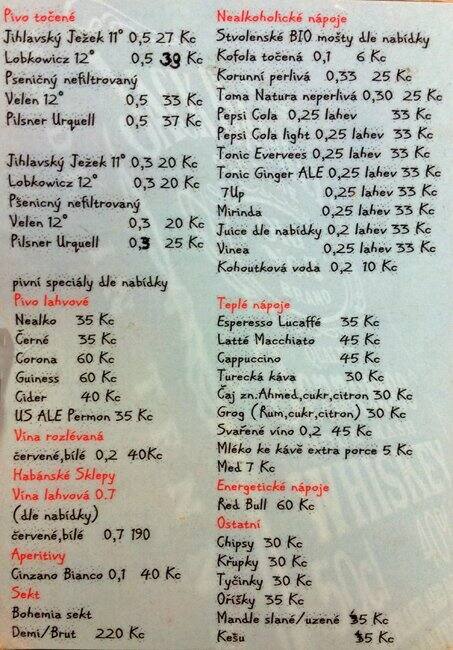 Pivo točené
Jihlavský Ježek 11° 0,5 27 Kc
Lobkowicz 12° 0,5 39 Kc
Pseničný nefiltrovaný
Velen 12° 0,5 33 Kc
Pilsner Urquell 0,5 37 Kc
Jihlavský Ježek 11° 0,3 20 Kc
Lobkowicz 12° 0,3 20 Kc
Pšenicný nefiltrovaný
Velen 12° 0,3 20 Kc
Pilsner Urquell 0,3 25 Kc
pivní speciály dle nabídky
Pivo lahvové
Nealko 35 Kc
Černé 35 Kc
Corona 60 Kc
Guiness 60 Kc
Cider 40 Kc
US ALE Permon 35 Kc
Vína rozlévaná
červené,bílé 0,2 40Kc
Habánské Sklepy
Vína lahvová 0.7
(dle nabídky)
červené,bílé 0,7 190
Aperitivy
Cinzano Bianco 0,1 40 Kc
Sekt
Bohemia sekt
Demi/Brut 220 Kc
Nealkoholické nápoje
Stvolenské BIO mošty dle nabídky
Kofola točená 0,1 6 Kc
Korunní perlivá 0,33 25 Kc
Toma Natura neperlivá 0,30 25 Kc
Pepsi Cola 0,25 lahev 33 Kc
Pepsi Cola light 0,25 lahev 33 Kc
Tonic Evervees 0,25 lahev 33 Kc
Tonic Ginger ALE 0,25 lahev 33 Kc
7Up 0,25 lahev 33 Kc
Mirinda 0,25 lahev 33 Kc
Juice dle nabídky 0,2 lahev 33 Kc
Vinea 0,25 lahev 33 Kc
Kohoutková voda 0,2 10 Kc
Teplé nápoje
Esperesso Lucaffé 35 Kc
Latté Macchiato 45 Kc
Cappuccino 45 Kc
Turecká káva 30 Kc
Čaj zn.Ahmed,cukr,citron 30 Kc
Grog (Rum,cukr,citron) 30 Kc
Svařené víno 0,2 45 Kc
Mléko ke kávě extra porce 5 Kc
Med 7 Kc
Energetické nápoje
Red Bull 60 Kc
Ostatní
Chipsy 30 Kc
Křupky 30 Kc
Tyčinky 30 Kc
Oříšky 35 Kc
Mandle slané/uzené Kc
Kešu Kc